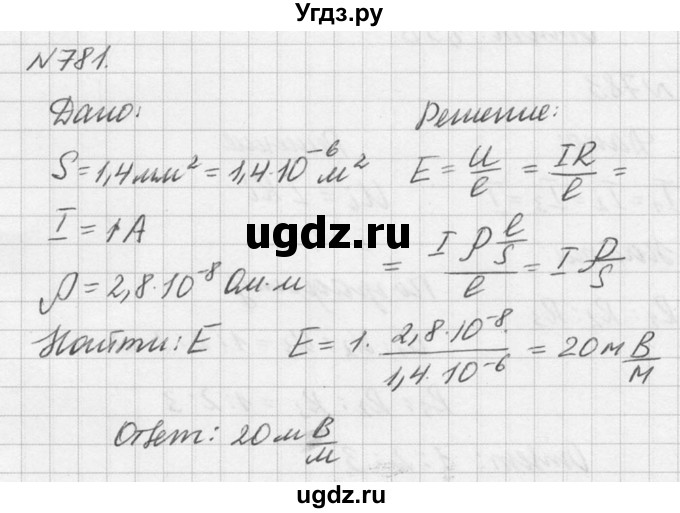 Угдз.ру
№781.
Дано:
S = 1,4 мм² = 1,4·10⁻⁶ м²
I = 1А
ρ = 2,8·10⁻⁸ Ом·м
Найти: E
Решение:
E = U/l = IR/l =
= (I ρ l/S)/l = I ρ/S
E = 1· 2,8·10⁻⁸/1,4·10⁻⁶ = 20 м В/м
Ответ: 20 м В/м
ugdz.ru
ugdz.ru